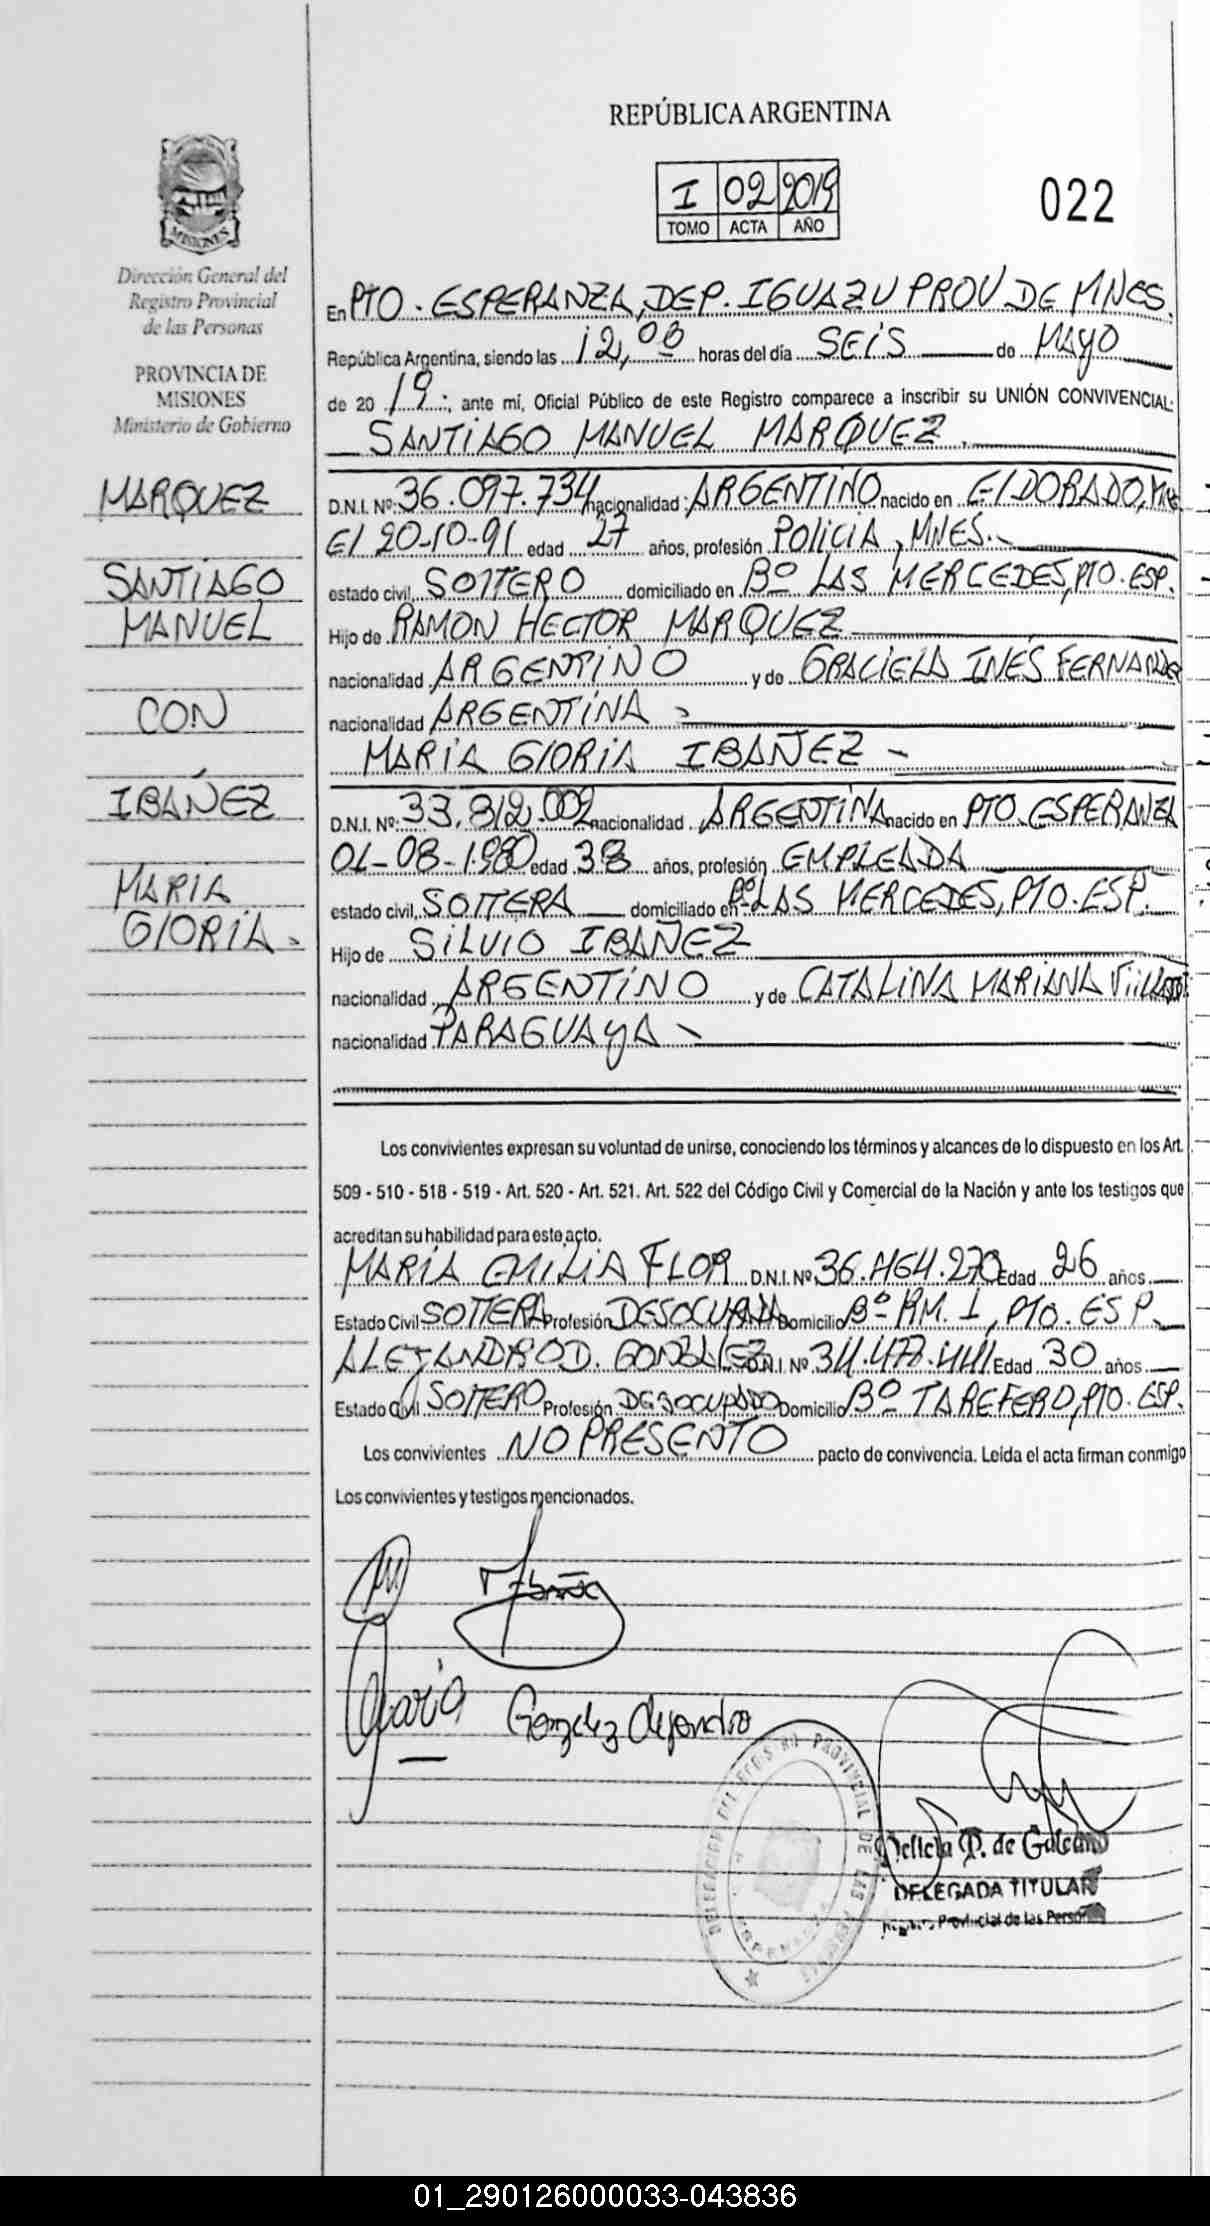 REPÚBLICA ARGENTINA
I 02 2019
TOMO ACTA AÑO
022
MISIONES
Dirección General del
Registro Provincial
de las Personas
PROVINCIA DE
MISIONES
Ministerio de Gobierno
MARQUEZ
SANTIAGO
MANUEL
CON
IBAÑEZ
MARIA
GlORIA
En PTO. ESPERANZA, DEP. IGUAZU PROV DE MNES.
República Argentina, siendo las 12,00 horas del día SEIS de MAYO
de 20 19 ; ante mí, Oficial Público de este Registro comparece a inscribir su UNIÓN CONVIVENCIAL:
SANTIAGO MANUEL MARQUEZ.
D.N.I. Nº: 36.097.734 nacionalidad: ARGENTINO nacido en ElDORADO, Mnes
El 20-10-91 edad 27 años, profesión POLICIA, MNES.
estado civil, SOlTERO domiciliado en Bº LAS MERCEDES, PTO. ESP.
Hijo de RAMON HECTOR MARQUEZ
nacionalidad ARGENTINO y de GRACIELA INES FERNANDEZ
nacionalidad ARGENTINA
MARIA GlORIA IBAÑEZ
D.N.I. Nº: 33.812.002 nacionalidad ARGENTINA nacido en PTO. ESPERANZA
01-08-1980 edad 38 años, profesión EMPLEADA
estado civil, SOlTERA domiciliado en Bº LAS MERCEDES, PTO. ESP.
Hijo de SILVIO IBAÑEZ
nacionalidad ARGENTINO y de CATALINA MARIANA
nacionalidad PARAGUAYA
Los convivientes expresan su voluntad de unirse, conociendo los términos y alcances de lo dispuesto en los Art.
509 - 510 - 518 - 519 - Art. 520 - Art. 521. Art. 522 del Código Civil y Comercial de la Nación y ante los testigos que
acreditan su habilidad para este acto.
MARIA EMILIA FLOR D.N.I. Nº 36.464.270 Edad 26 años
Estado Civil SOlTERA Profesión DESOCUPADA Domicilio Bº KM. 1, PTO. ESP.
ALEJANDRO D. GONZALEZ D.N.I. Nº 34.477.441 Edad 30 años
Estado Civil SOlTERO Profesión DESOCUPADO Domicilio Bº TAREFERO, PTO. ESP.
Los convivientes NO PRESENTO pacto de convivencia. Leída el acta firman conmigo
Los convivientes y testigos mencionados.
Maria Gonzalez Alejandro
DELEGACION DEL REGISTRO PROVINCIAL DE LAS PERSONAS
ESPERANZA
de Galeano
DELEGADA TITULAR
Provincial de las Personas
01_290126000033-043836